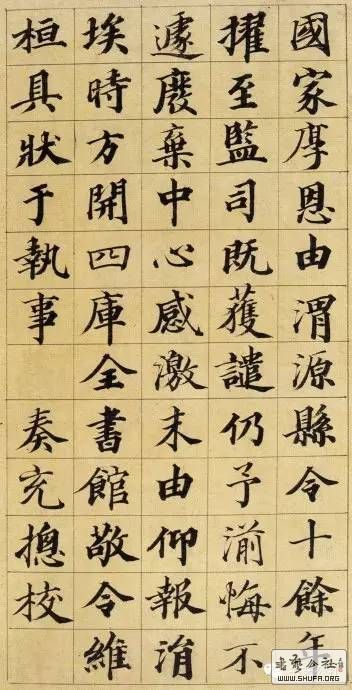 國家厚恩由渭源縣令十餘年
擢至監司既獲譴仍予湔悔不
遽廢棄中心感激未由仰報涓
埃時方開四庫全書館敬令維
桓具狀于執事 奏充摠校
书艺公社
WWW.SHUFA.ORG